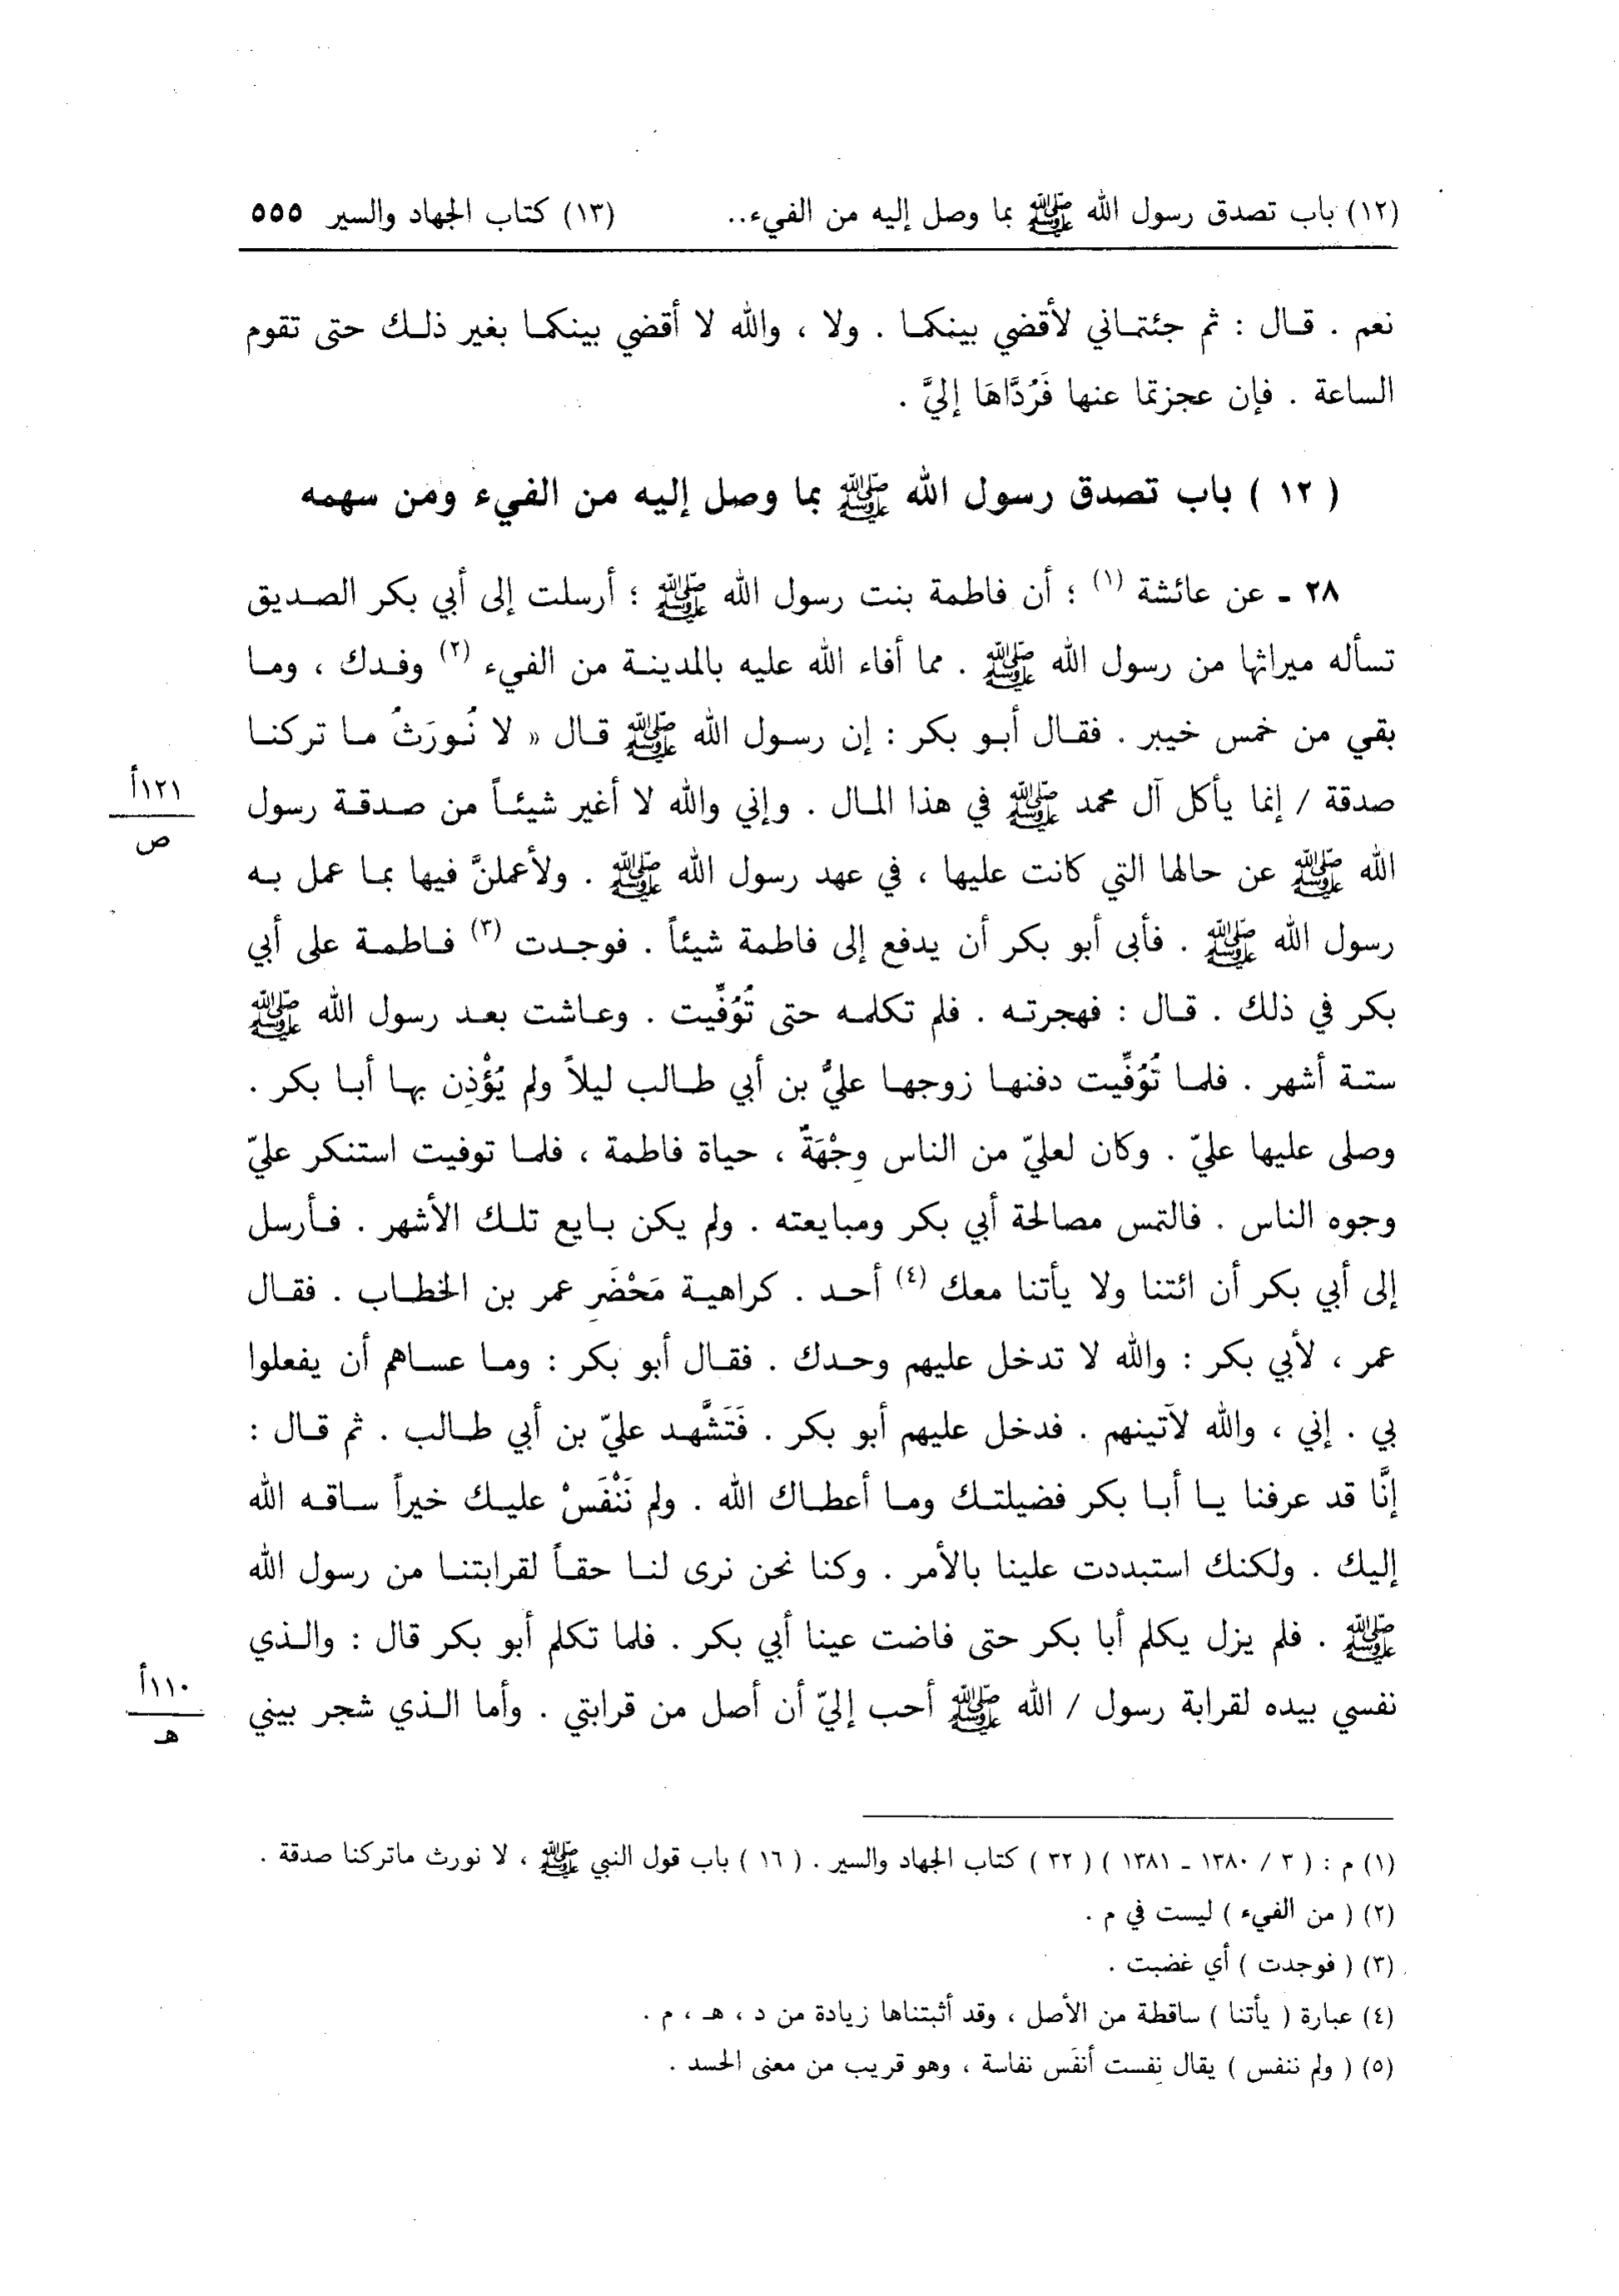 (١٢) باب تصدق رسول الله ﷺ بما وصل إليه من الفيء.. (١٣) كتاب الجهاد والسير ٥٥٥
نعم . قال : ثم جئتماني لأقضي بينكما . ولا ، والله لا أقضي بينكما بغير ذلك حتى تقوم
الساعة . فإن عجزتما عنها فَرُدَّاهَا إليَّ .
( ١٢ ) باب تصدق رسول الله ﷺ بما وصل إليه من الفيء ومن سهمه
٢٨ ـ عن عائشة (١) ؛ أن فاطمة بنت رسول الله ﷺ ؛ أرسلت إلى أبي بكر الصديق
تسأله ميراثها من رسول الله ﷺ . مما أفاء الله عليه بالمدينة من الفيء (٢) وفدك ، وما
بقي من خمس خيبر . فقال أبو بكر : إن رسول الله ﷺ قال « لا نُورَثُ ما تركنا
صدقة / إنما يأكل آل محمد ﷺ في هذا المال . وإني والله لا أغير شيئاً من صدقة رسول
١٢١أ
ص
الله ﷺ عن حالها التي كانت عليها ، في عهد رسول الله ﷺ . ولأعملنَّ فيها بما عمل به
رسول الله ﷺ . فأبى أبو بكر أن يدفع إلى فاطمة شيئاً . فوجدت (٣) فاطمة على أبي
بكر في ذلك . قال : فهجرته . فلم تكلمه حتى تُوُفِّيت . وعاشت بعد رسول الله ﷺ
ستة أشهر . فلما تُوُفِّيت دفنها زوجها عليُّ بن أبي طالب ليلاً ولم يُؤْذِن بها أبا بكر .
وصلى عليها عليّ . وكان لعليّ من الناس وِجْهَةٌ ، حياة فاطمة ، فلما توفيت استنكر عليّ
وجوه الناس . فالتمس مصالحة أبي بكر ومبايعته . ولم يكن بايع تلك الأشهر . فأرسل
إلى أبي بكر أن ائتنا ولا يأتنا معك (٤) أحد . كراهية مَحْضَرِ عمر بن الخطاب . فقال
عمر ، لأبي بكر : والله لا تدخل عليهم وحدك . فقال أبو بكر : وما عساهم أن يفعلوا
بي . إني ، والله لآتينهم . فدخل عليهم أبو بكر . فَتَشَّهد عليّ بن أبي طالب . ثم قال :
إنَّا قد عرفنا يا أبا بكر فضيلتك وما أعطاك الله . ولم نَنْفَسْ عليك خيراً ساقه الله
إليك . ولكنك استبددت علينا بالأمر . وكنا نحن نرى لنا حقاً لقرابتنا من رسول الله
ﷺ . فلم يزل يكلم أبا بكر حتى فاضت عينا أبي بكر . فلما تكلم أبو بكر قال : والذي
نفسي بيده لقرابة رسول / الله ﷺ أحب إليّ أن أصل من قرابتي . وأما الذي شجر بيني
١١٠أ
هـ
(١) م : ( ٣ / ١٣٨٠ ـ ١٣٨١ ) ( ٣٢ ) كتاب الجهاد والسير . ( ١٦ ) باب قول النبي ﷺ ، لا نورث ماتركنا صدقة .
(٢) ( من الفيء ) ليست في م .
(٣) ( فوجدت ) أي غضبت .
(٤) عبارة ( يأتنا ) ساقطة من الأصل ، وقد أثبتناها زيادة من د ، هـ ، م .
(٥) ( ولم ننفس ) يقال نفِست أنفَس نفاسة ، وهو قريب من معنى الحسد .